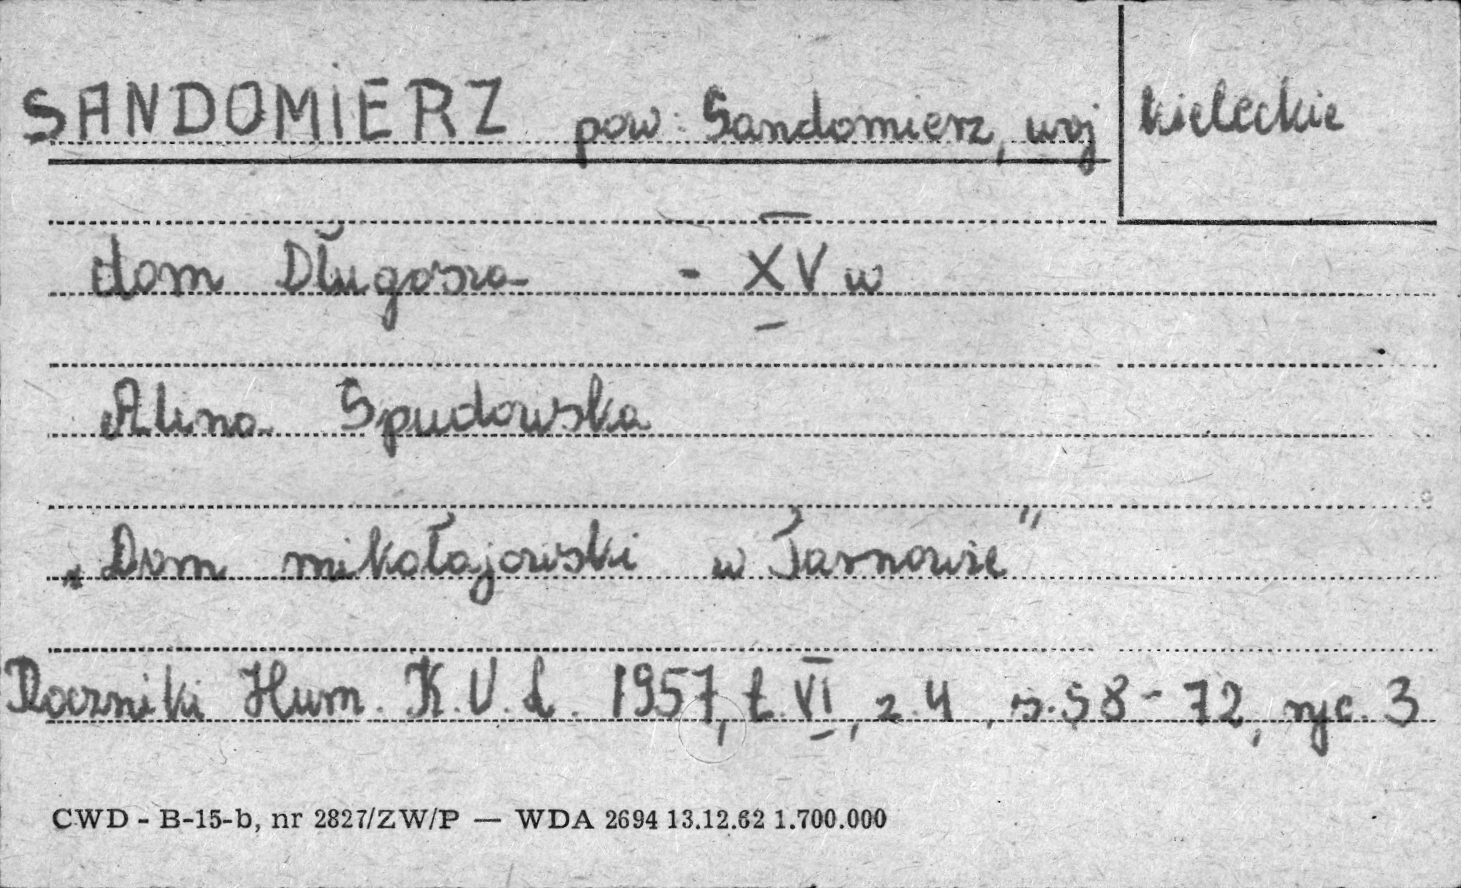 SANDOMIERZ pow. Sandomierz, woj kieleckie
dom Długosza - XV w
Alina Spudowska
„Dom mikołajowski w Tarnowie"
Roczniki Hum. K.U.L. 1957, t. VI, z. 4, s. 58-72, ryc. 3
CWD - B-15-b, nr 2827/ZW/P — WDA 2694 13.12.62 1.700.000